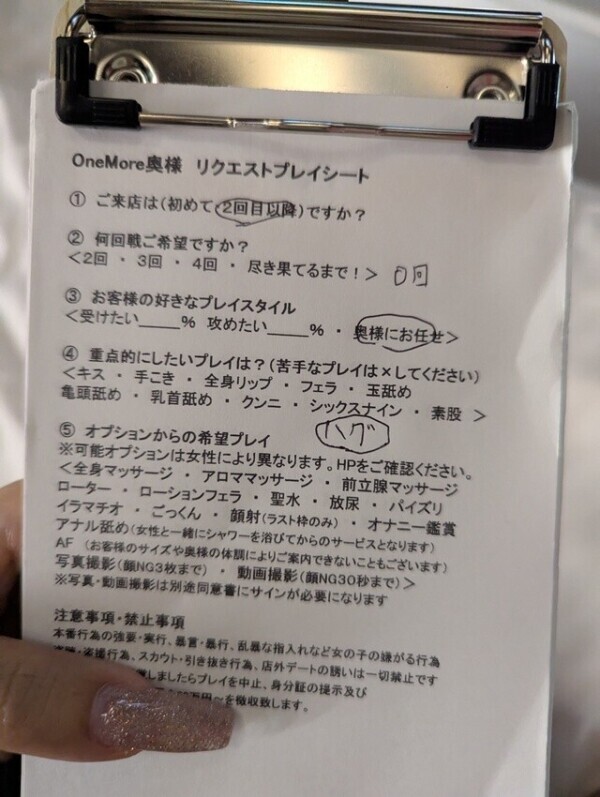 OneMore奥様 リクエストプレイシート
① ご来店は(初めて・2回目以降)ですか?
② 何回戦ご希望ですか?
<2回 ・ 3回 ・ 4回 ・ 尽き果てるまで!> 0回
③ お客様の好きなプレイスタイル
<受けたい____% 攻めたい____% ・ 奥様にお任せ>
④ 重点的にしたいプレイは?(苦手なプレイは×してください)
<キス ・ 手こき ・ 全身リップ ・ フェラ ・ 玉舐め
亀頭舐め ・ 乳首舐め ・ クンニ ・ シックスナイン ・ 素股 >
ハグ
⑤ オプションからの希望プレイ
※可能オプションは女性により異なります。HPをご確認ください。
<全身マッサージ ・ アロママッサージ ・ 前立腺マッサージ
ローター ・ ローションフェラ ・ 聖水 ・ 放尿 ・ パイズリ
イラマチオ ・ ごっくん ・ 顔射(ラスト枠のみ) ・ オナニー鑑賞
アナル舐め(女性と一緒にシャワーを浴びてからのサービスとなります)
AF (お客様のサイズや奥様の体調によりご案内できないこともございます)
写真撮影(顔NG3枚まで) ・ 動画撮影(顔NG30秒まで)>
※写真・動画撮影は別途同意書にサインが必要になります
注意事項・禁止事項
本番行為の強要・実行、暴言・暴行、乱暴な指入れなど女の子の嫌がる行為
盗撮行為、スカウト・引き抜き行為、店外デートの誘いは一切禁止です
しましたらプレイを中止、身分証の提示及び
万円~を徴収致します。